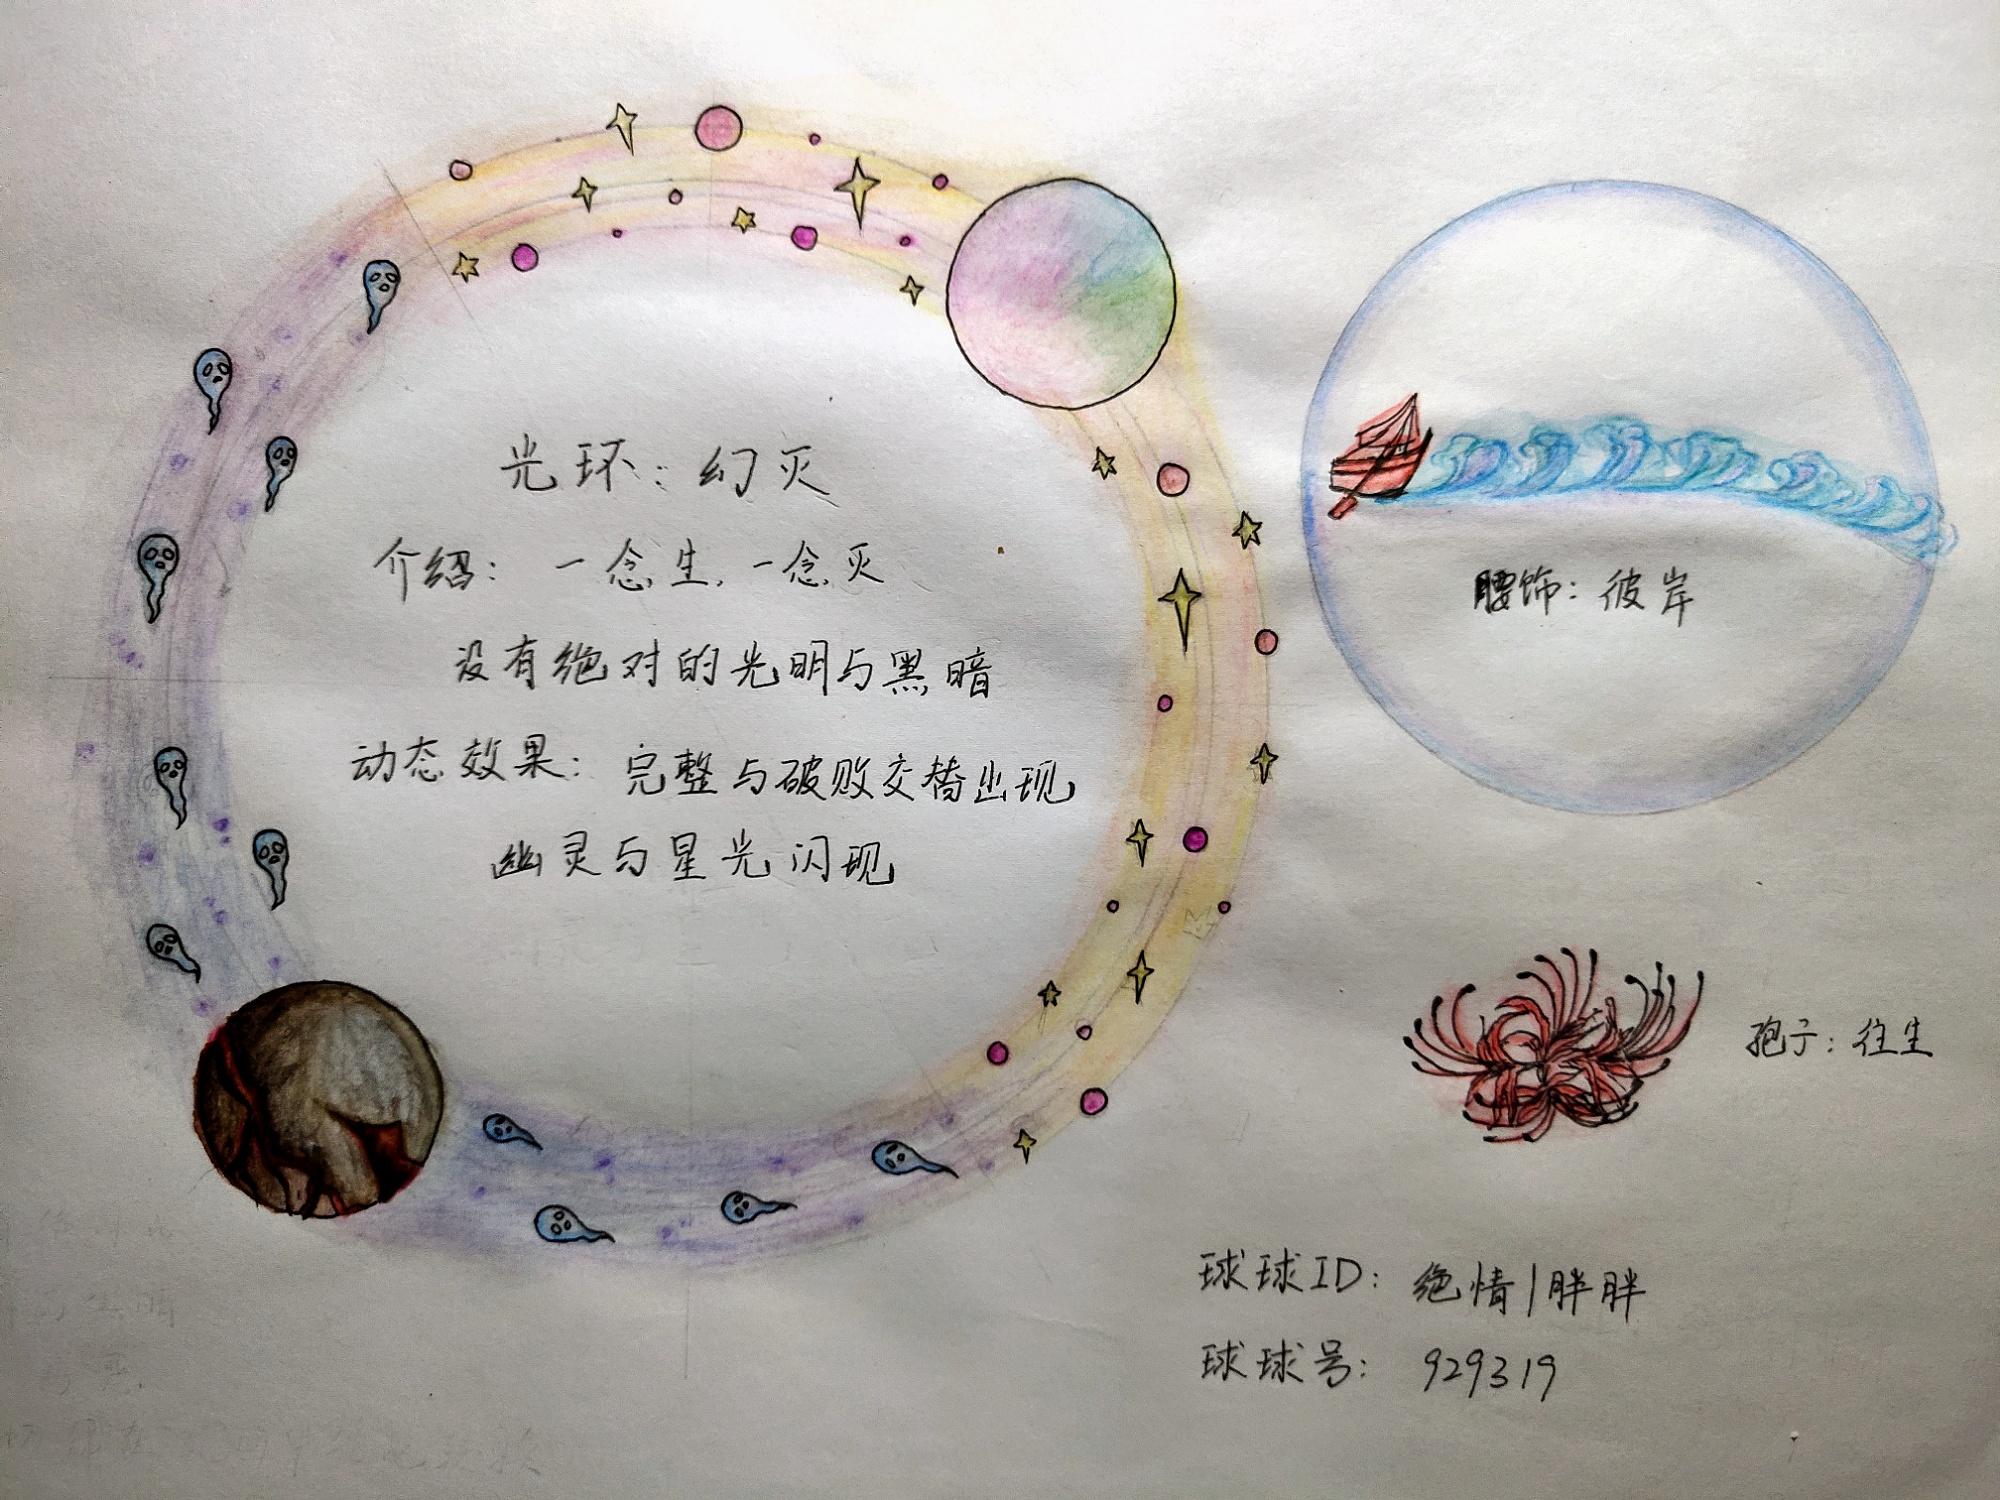 光环：幻灭
介绍：一念生，一念灭
没有绝对的光明与黑暗
动态效果：完整与破败交替出现
幽灵与星光闪现
腰饰：彼岸
孢子：往生
球球ID：绝情|胖胖
球球号：929319